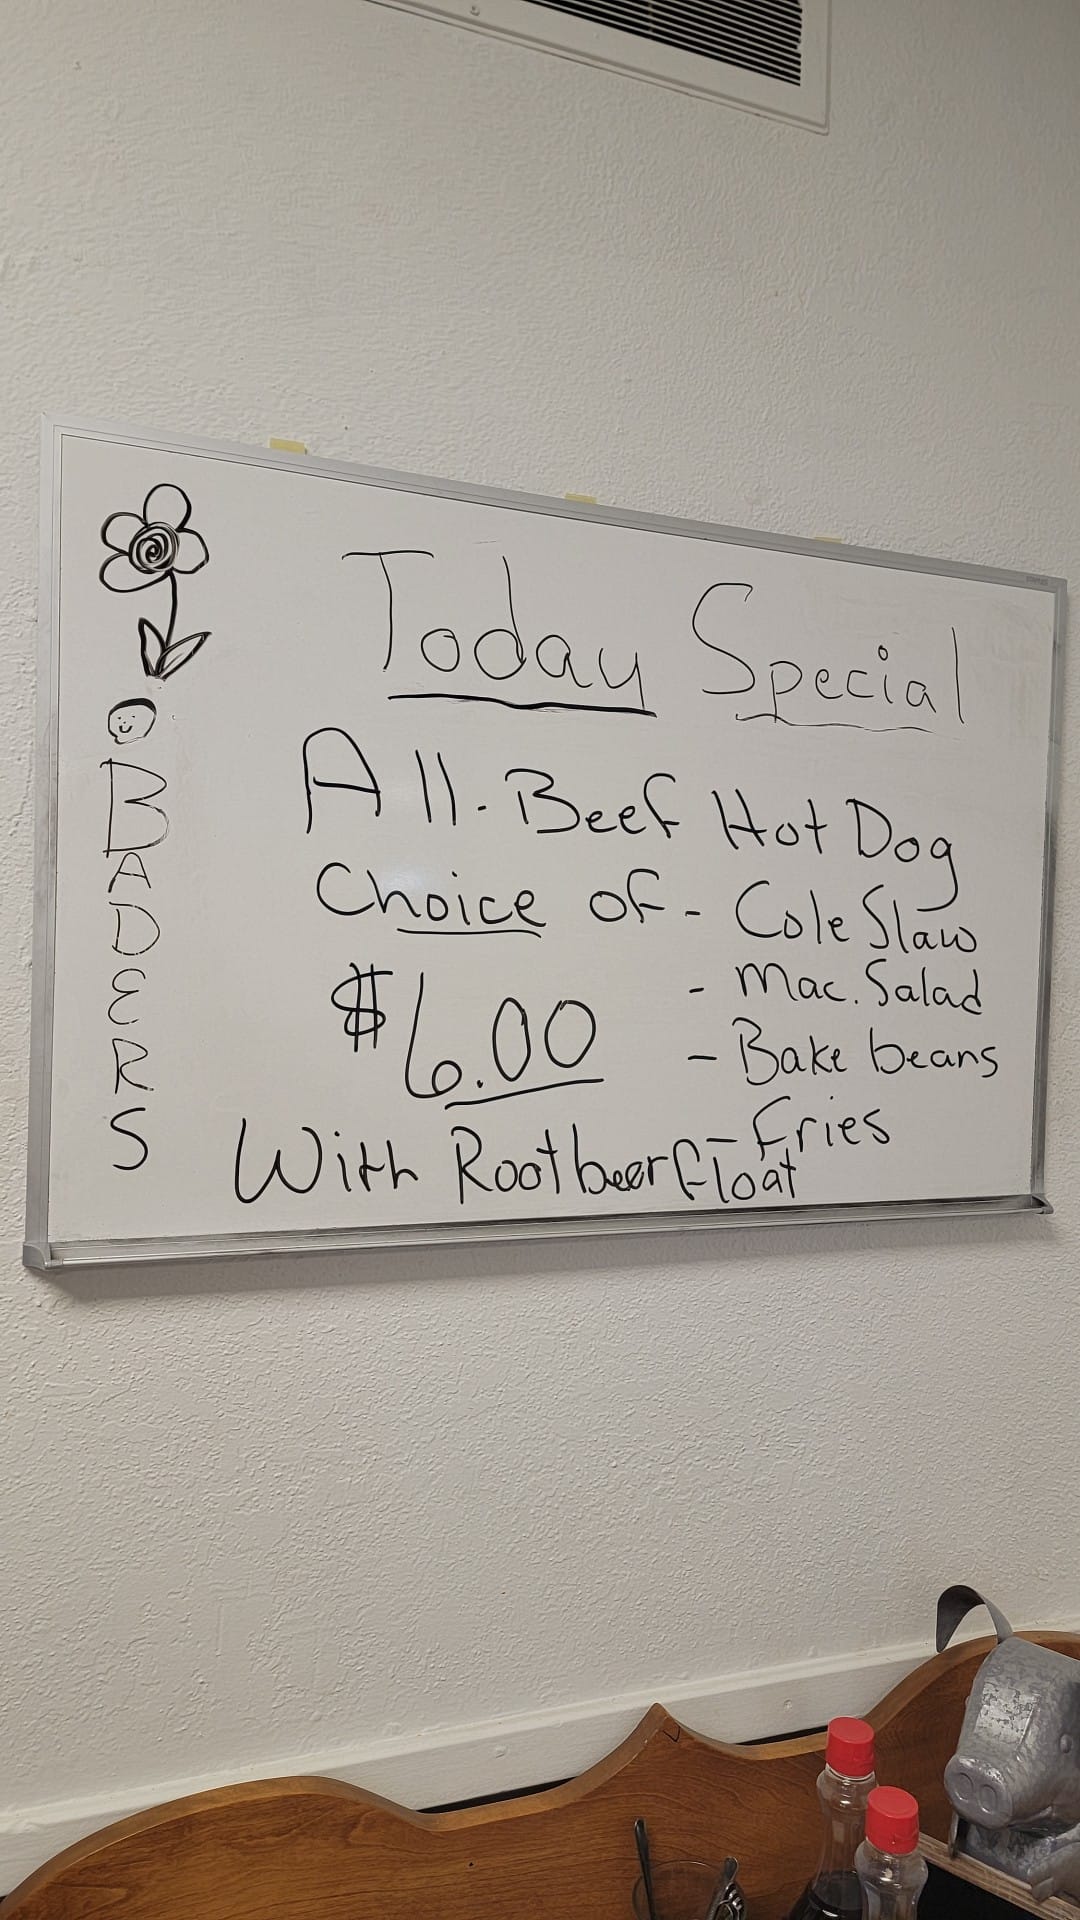 Today Special
All-Beef Hot Dog
Choice of - Cole Slaw
- Mac. Salad
$6.00
- Bake beans
- Fries
With Rootbeer float
BADERS